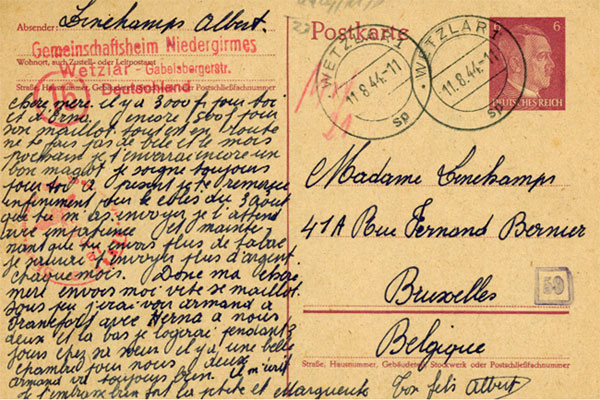 Absender: Linchamps Albert.
Gemeinschaftsheim Niedergirmes
Wohnort, auch Zustell- oder Leitpostamt
Wetzlar - Gabelsbergerstr.
Deutschland
Straße, Hausnummer,
Postschließfachnummer
chère mère. il y a 3000 f pour toi
et a Erna. encore 1500 f pour
son maillot. tout est en route
ne te fais pas de bile et le mois
prochain je t'enverai encore un
bon magot. je soigne toujours
pour toi a présent je te remercie
infiniment pour le colis du 3 aout
que tu m'as envoyer je l'attend
avec impatience et mainte
nant que tu envois plus de tabac
je t'envoyer plus d'argent
chaque mois. Donc ma chère
mère envois moi vite se maillot.
sous peu j'irai voir armand a
Francfort avec Herna a nous
deux et la bas je logerai pendant 3
jours chez sa sœur il y a une belle
chambre pour nous deux
armand va toujours bien. il m'écrit
de t'embrasser la petite et Marguerite ton fils Albert
Postkarte
WETZLAR 1
11.8.44.-11
sp
WETZLAR 1
11.8.44.-11
sp
6
DEUTSCHES REICH
Madame Linchamps
41A Rue Fernand Bernier
Bruxelles
50
Belgique
Straße, Hausnummer, Gebäudeteil, Stockwerk oder Postschließfachnummer